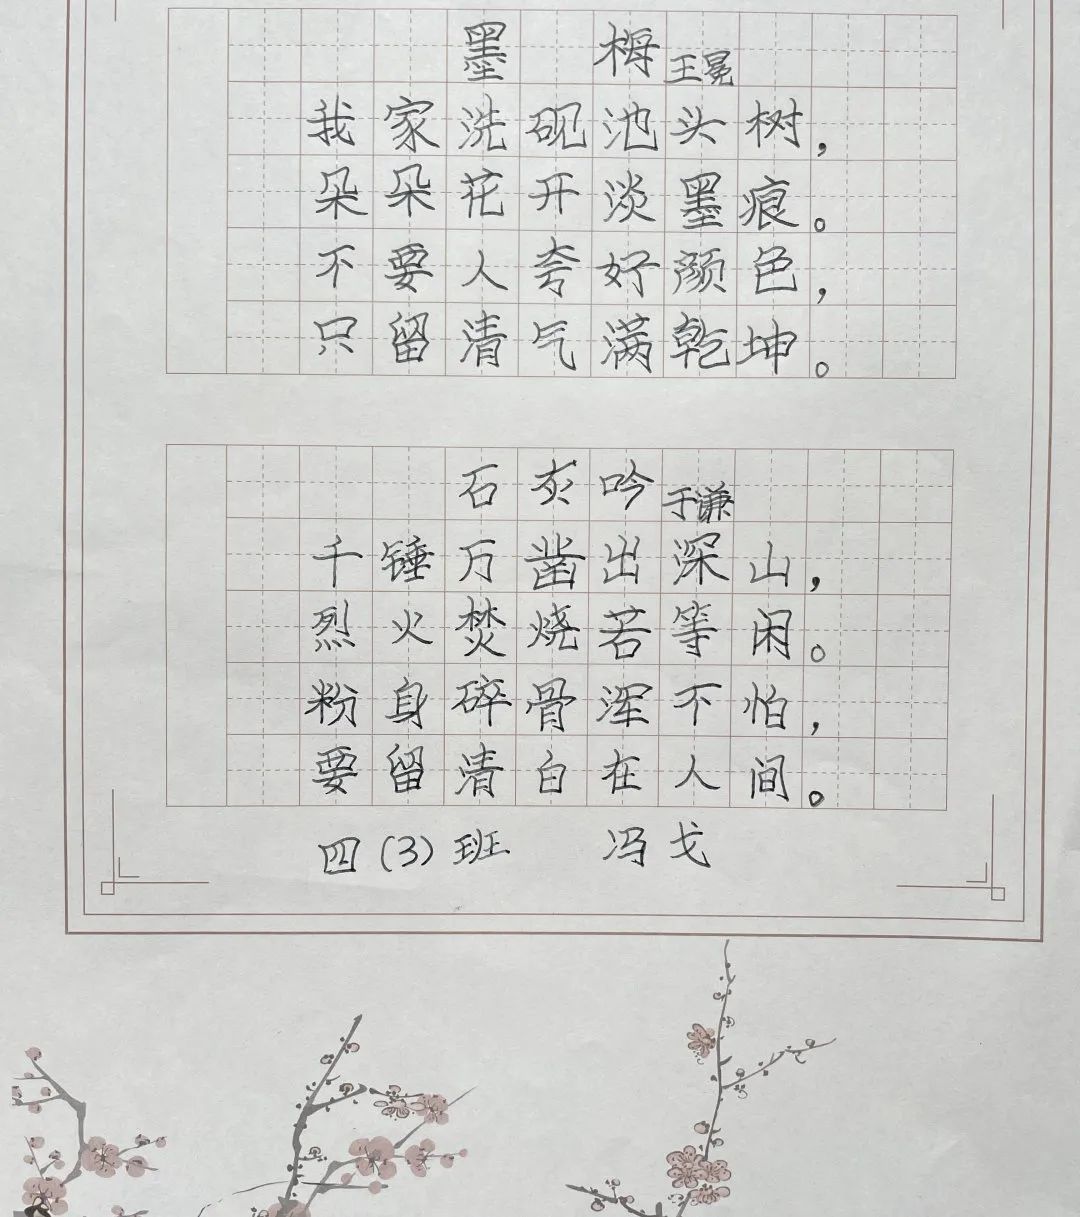 墨梅 王冕
我家洗砚池头树，
朵朵花开淡墨痕。
不要人夸好颜色，
只留清气满乾坤。
石灰吟 于谦
千锤万凿出深山，
烈火焚烧若等闲。
粉身碎骨浑不怕，
要留清白在人间。
四(3)班 冯戈